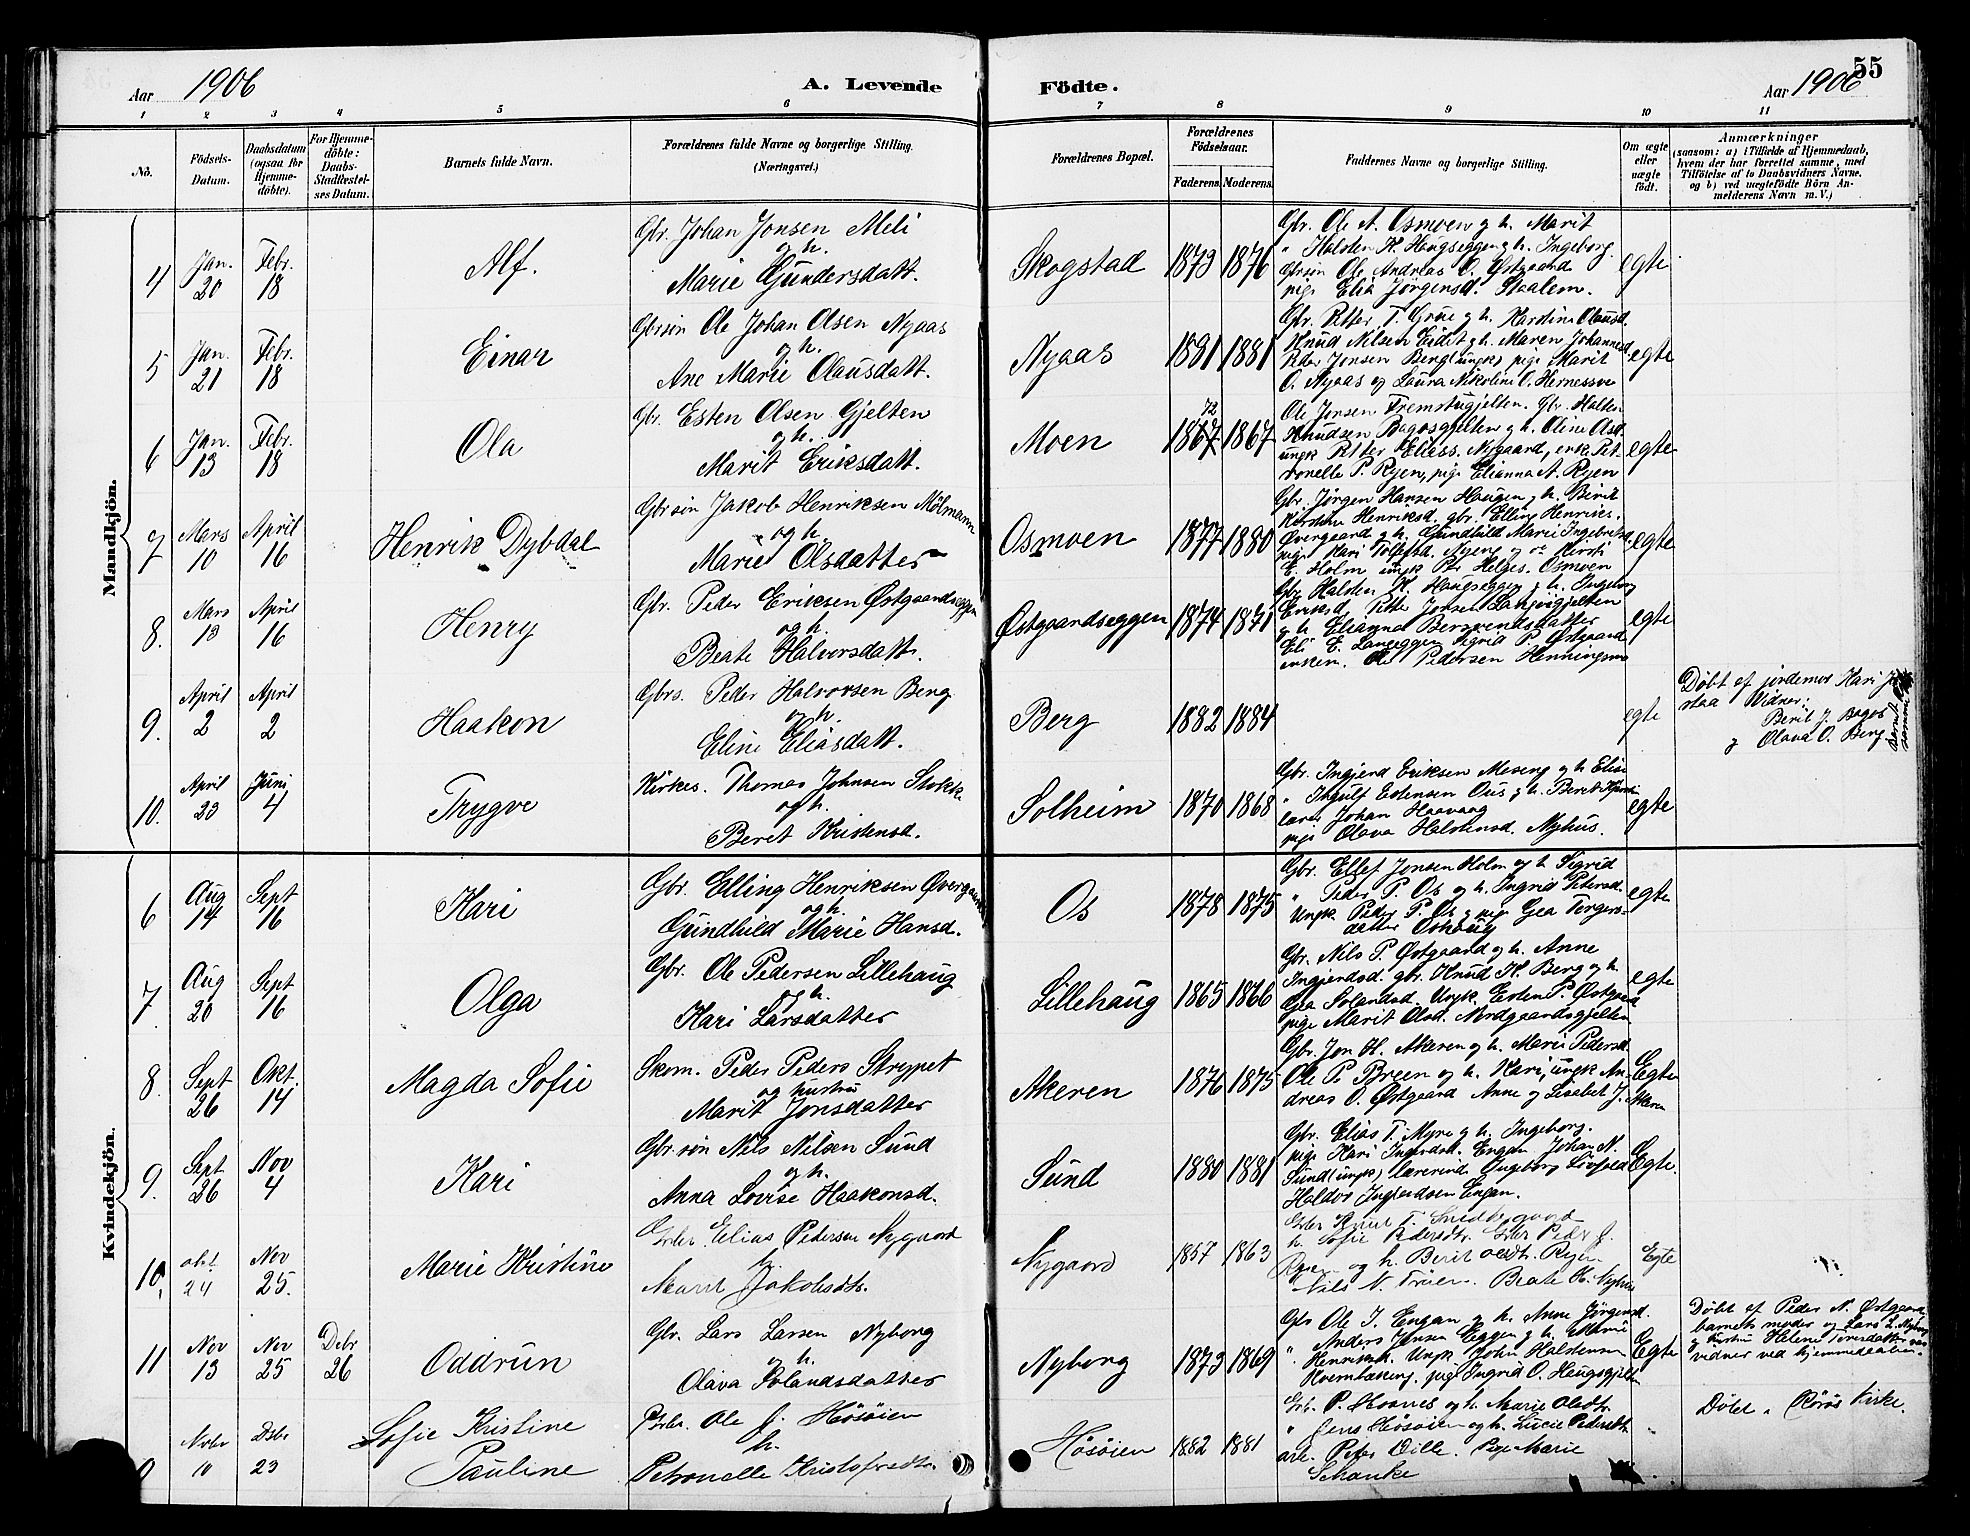 Aar 1906
A. Levende
Födte.
Aar 1906
55
1 2 3 4 5 6 7 8 9 10 11
No.
Födsels-
Datum.
Daabsdatum
(ogsaa for
Hjemme-
döbte).
For Hjemme-
döbte:
Daabs-
Stadfæstel-
ses Datum.
Barnets fulde Navn.
Forældrenes fulde Navne og borgerlige Stilling.
(Næringsvei.)
Forældrenes Bopæl.
Forældrenes
Födselsaar.
Faderens. Moderens.
Faddernes Navne og borgerlige Stilling.
Om ægte
eller
uægte
födt.
Anmærkninger
(saasom: a) i Tilfælde af Hjemmedaab,
hvem der har forrettet samme, med
Tilföielse af to Daabsvidners Navne,
og b) ved uægtefödte Börn An-
melderens Navn m. V.)
Mandkjön.
4
Jan. 20
Febr. 18
Alf.
Gbr. Johan Jonsen Meli
og h.
Marie Gundersdatt.
Skogstad
1873 1876
Gbr. Ole A. Osmoen g h. Marit
" Halsten K. Haugseggen g h. Ingeborg.
Gbrsøn Ole Andreas O. Østgaard
pige Elia Jørgensd. Staalem.
egte
5
Jan. 21
Febr. 18
Einar
Gbrsøn Ole Johan Olsen Nyaas
og h.
Ane Marie Olausdatt.
Nyaas
1881 1881
Gbr. Petter T. Grue g h. Kardine Olausd.
Knud Nilsen Eidet g h. Maren Johannesd.
Peder Jonsen Berg (ungk) pige Marit
O. Nyaas og Laura Nikoline O. Hernessve
egte
6
Jan. 13
Febr. 18
Ola
Gbr. Esten Olsen Gjelten
og h.
Marit Eriksdatt.
Moen
72
1867 1867
Ole Jonsen Fremstugjelten. Gbr. Halten
Knudsen Bagosgjelten g h. Oline Olsd.
ungk Petter Eliass. Nygaard, enke Pet-
ronelle P. Ryen, pige Elianna A. Ryen
egte
7
Mars 10
April 16
Henrik Dybdal
Gbrsøn Jakob Henriksen Mølmann
og h.
Marie Olsdatter
Osmoen
1877 1880
Gbr. Jørgen Hansen Haugen g h. Berit
Kirstine Henriksd. gbr. Elling Henriks.
Øvergaard g h. Gundhild Marie Ingebretsd.
pige Kari Tolfsd. Nyeng g Kersti
E. Holm ungk Per Helges. Osmoen
egte
8.
Mars 13
April 16
Henry
Gbr. Peder Eriksen Østgaardseggen
og h.
Beate Halvorsdatt.
Østgaardseggen
1874 1871
Gbr. Halsten K. Haugseggen g h. Ingeborg
Eriksd. Petter Jonsen
g h. Elianna Bersvendsdatter
Eli E. Langeggen Sigrid P. Østgaard
Ole Pedersen Henningmo
egte
9.
April 2
April 2
Haakon
Gbrs. Peder Halvorsen Berg
og h.
Eline Eliasdatt.
Berg
1882 1884
egte
Døbt af jordemor Kari
staa Vidner:
Berit J. Bagos
g Olava O. Berg
10.
April 23
Juni 4
Trygve
Kirkes. Thomas Johnsen Stokke
og h.
Beret Kristensd.
Solheim
1870 1868
Gbr. Ingjerd Eriksen Moseng g h. Elise
" Ingulf Estensen Ous g h. Berit
lærer Johan Haavang
pige Olava Halstensd. Nyhus.
egte
Kvindekjön.
6
Aug 14
Sept 16
Kari
Gbr. Elling Henriksen Øvergaard
og h.
Gundhild Marie Hansd.
Os
1878 1875
Gbr. Ellef Jonsen Holm og h. Sigrid
" Peder P. Os og h. Ingrid Petersd.
Ungk. Peder P. Os g pige Gea Torgers-
datter Oshaug
egte
7
Aug 20
Sept 16
Olga
Gbr. Ole Pedersen Lillehaug
og h.
Kari Larsdatter
Lillehaug
1865 1866
Gbr. Nils P. Østgaard og h. Anne
Ingjerdsd. gbr. Knud K. Berg og h.
Gea Iverlandsd. Ungk. Esten P. Østgaard
pige Marit Olsd. Nordgaardsgjelten
egte
8
Sept 26
Okt. 14
Magda Sofie
Skom. Peder Peders Strypet
og hustru
Marit Jonsdatter
Akeren
1876 1875
Gbr. Jon H. Akeren og h. Marie Pedersd.
Ole P. Breen og h. Kari, ungk An-
dreas O. Østgaard Anne g Lisabet J. Akeren
Egte
9.
Sept 26
Nov 4
Kari
Gbr.søn Nils Nilsen Sund
og h.
Anna Lovise Haakonsd.
Sund
1880 1881
Gbr. Elias T. Myre g h. Ingeborg.
pige Kari Ingerdsd. Engan Johan N.
Sund (ungk) lærerinde Ingeborg Løvfald
Haldor Ingerdsen Engan.
Egte.
10,
okt 24
Nov 25.
Marie Kristine
Gbr. Elias Pedersen Nygaard
h.
Marit Jakobsdtr.
Nygaard
1857 1863
Gbr Knut T.
h. Sofie Pedersdtr. Gbr Peder J.
Ryen og h. Berit Olsdtr. Ryen
Nils N. Trøen. Beate H. Nyhus
Egte
11
Nov 13
Nov 25
Debr 26
Oddrun
Gbr. Lars Larsen Nyborg
og h.
Olava Iolandsdatter
Nyborg
1873 1869
Gbr Ole J. Engan g h. Anne Jørgensd.
" Anders Jonsen Eggen g h. Marie
" Henriksd. Ungk John Halstensen
Kvernbækeng, pige Ingrid O. Haugsgjelten
Egte
Døbt af Peder N. Østgaard
barnets moder og Lars L. Nyborg
g hustru Helene Toresdatter var
vidner ved hjemmedaaben.
Novbr 10
Dsbr 23
Sofie Kristine
Pauline
Gbr. Ole J. Høsøien
h.
Petronelle Kristofersdtr.
Høsøien
1882 1881
Gbr. P. Skoanes og h. Marie Olsdtr.
" Jens Høsøien og h. Lucie Pedersdtr.
arb. Peter Ville. Pige Marie
Schanke
"
Døbt i Røros Kirke.